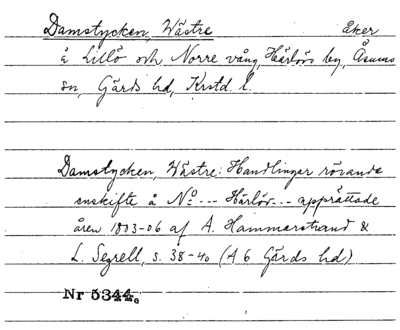 Damstycken, Wästre Åker
å Lillö och Norre vång, Härlövs by, Åsums
sn, Gärds hd, Krstd. l.
Damstycken, Wästre: Handlingar rörande
enskifte å No --- Härlöv --- upprättade
åren 1803-06 af A. Hammarstrand &
L. Segrell, s. 38-40 (A 6 Gärds hd)
Nr 5344.